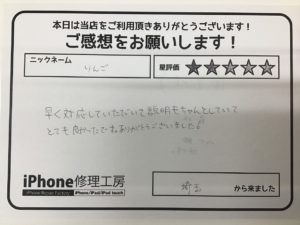 本日は当店をご利用頂きありがとうございます！
ご感想をお願いします！
ニックネーム
りんご
星評価
★★★★★
早く対応していただいて説明もちゃんとしていて
とても良かったですありがとうございました！
iPhone修理工房
iPhone Repair Factory
iPhone/iPad/iPod touch
埼玉
から来ました